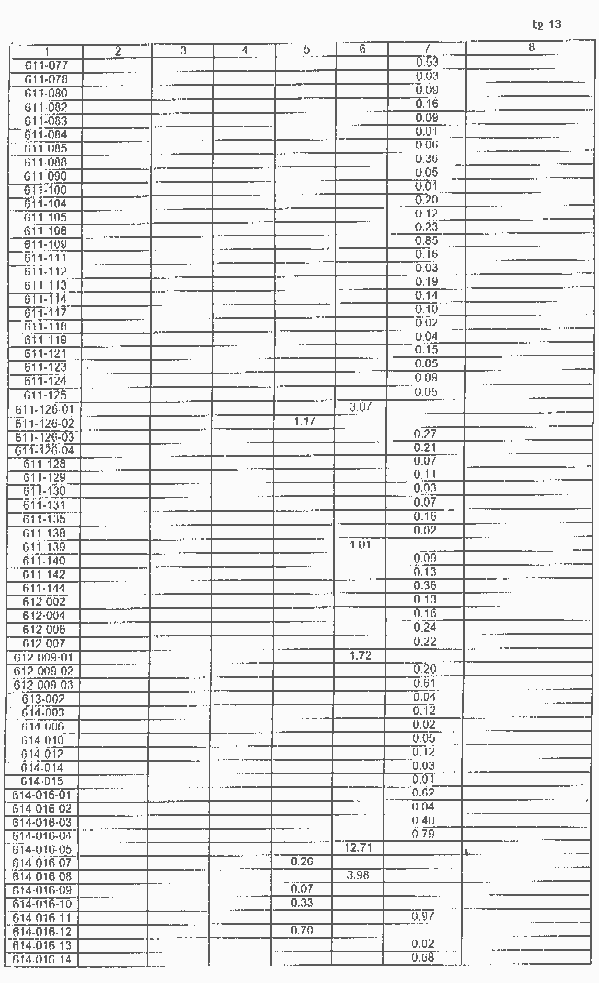 tq 13
1 2 3 4 5 6 7 8
611-077 0.53
611-078 0.03
611-080 0.09
611-082 0.16
611-083 0.09
611-084 0.01
611 085 0.06
611 088 0.36
611 090 0.05
611-100 0.01
611-104 0.20
611 105 0.12
611 108 0.23
611-109 0.85
611-111 0.16
611-112 0.03
611 113 0.19
611-114 0.14
611-117 0.10
611-118 0.02
611 119 0.04
611-121 0.15
611-123 0.05
611-124 0.09
611-125 0.05
611-126-01 3.07
611-126-02 1.17
611-126-03 0.27
611-126-04 0.21
611 128 0.07
611-129 0.11
611-130 0.03
611-131 0.07
611-135 0.16
611 138 0.02
611 139 1.01
611-140 0.09
611 142 0.13
611-144 0.36
612 002 0.13
612-004 0.16
612 006 0.24
612 007 0.22
612 009-01 1.72
612 009 02 0.20
612 009 03 0.61
613-002 0.04
614-003 0.12
614 006 0.02
614 010 0.05
614 012 0.12
614-014 0.03
614-015 0.01
614-016-01 0.62
614 016 02 0.04
614-016-03 0.40
614-016-04 0.79
614-016-05 12.71
614 016 07 0.26
614 016 08 3.98
614-016-09 0.07
614-016-10 0.33
614 016 11 0.97
614-016-12 0.70
614-016 13 0.02
614-016 14 0.68